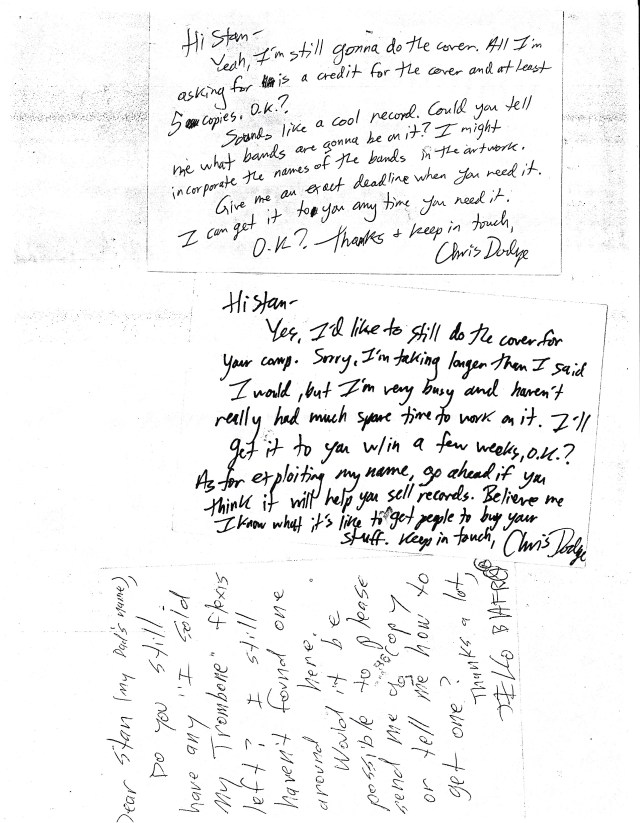 Hi Stan-
Yeah, I'm still gonna do the cover. All I'm
asking for is a credit for the cover and at least
5 copies. O.K.?
Sounds like a cool record. Could you tell
me what bands are gonna be on it? I might
incorporate the names of the bands in the artwork.
Give me an exact deadline when you need it.
I can get it to you any time you need it.
O.K.? Thanks + keep in touch,
Chris Dodge
Hi Stan-
Yes, I'd like to still do the cover for
your comp. Sorry, I'm taking longer than I said
I would, but I'm very busy and haven't
really had much spare time to work on it. I'll
get it to you w/in a few weeks, O.K.?
As for exploiting my name, go ahead if you
think it will help you sell records. Believe me
I know what it's like to get people to buy your
stuff. Keep in touch, Chris Dodge
Dear Stan (my Dad's name),
Do you still
have any "I Sold
My Trombone" flexis
left? I still
haven't found one
around here.
Would it be
possible to please
send me a copy
or tell me how to
get one?
Thanks a lot,
JELLO BIAFRA